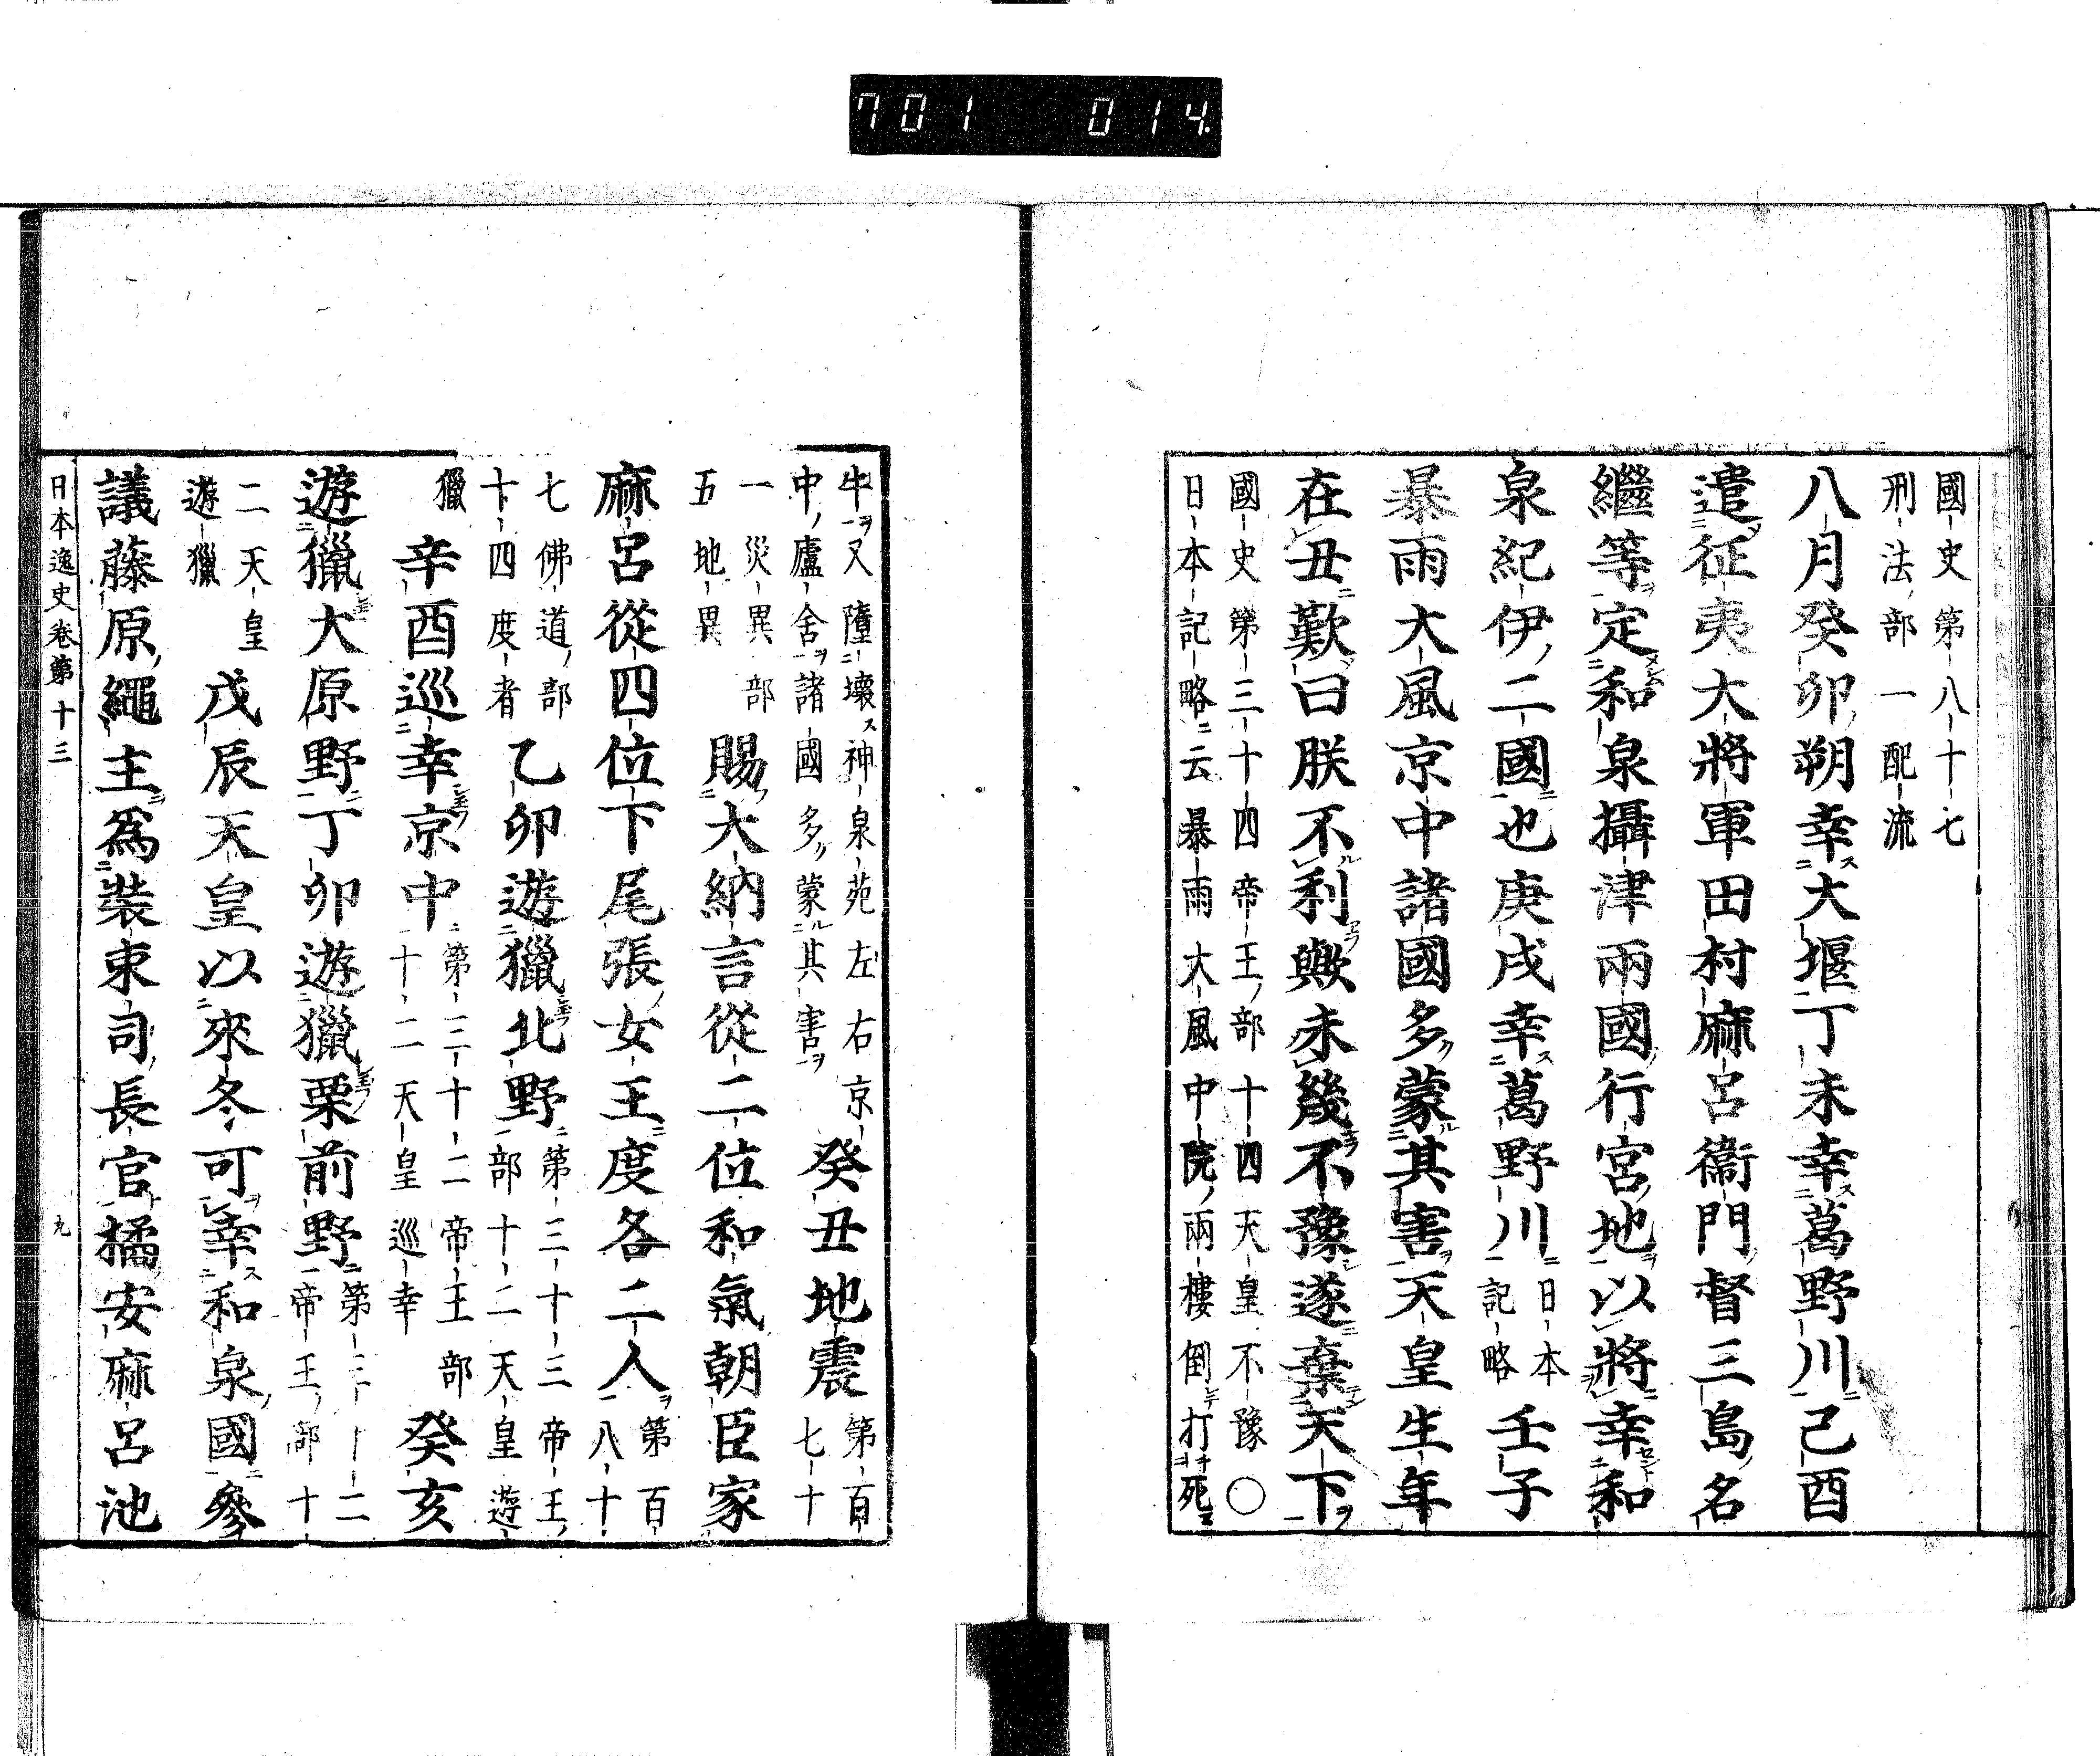 701 014
國史第八十七
刑法部一配流
八月癸卯朔幸大堰丁未幸葛野川己酉
遣征夷大將軍田村麻呂衞門督三島名
繼等定和泉攝津兩國行宮地以將幸和
泉紀伊二國也庚戌幸葛野川
日本
記略
壬子
暴雨大風京中諸國多蒙其害天皇生年
在丑歎曰朕不利歟未幾不豫遂棄天下
國史第三十四帝王部十四天皇不豫〇
日本記略云暴雨大風中院兩樓倒打死
牛又墮壞神泉苑左右京
中廬舍諸國多蒙其害
癸丑地震
第百
七十
一災異部
五地異
賜大納言從二位和氣朝臣家
麻呂從四位下尾張女王度各二人
第百
八十
七佛道部
十四度者
乙卯遊獵北野
第三十三帝王
部十二天皇遊
獵
辛酉巡幸京中
第三十二帝王部
十二天皇巡幸
癸亥
遊獵大原野丁卯遊獵栗前野
第三十二
帝王部十
二天皇
遊獵
戊辰天皇以來冬可幸和泉國參
議藤原繩主爲裝束司長官橘安麻呂池
日本逸史卷第十三
九